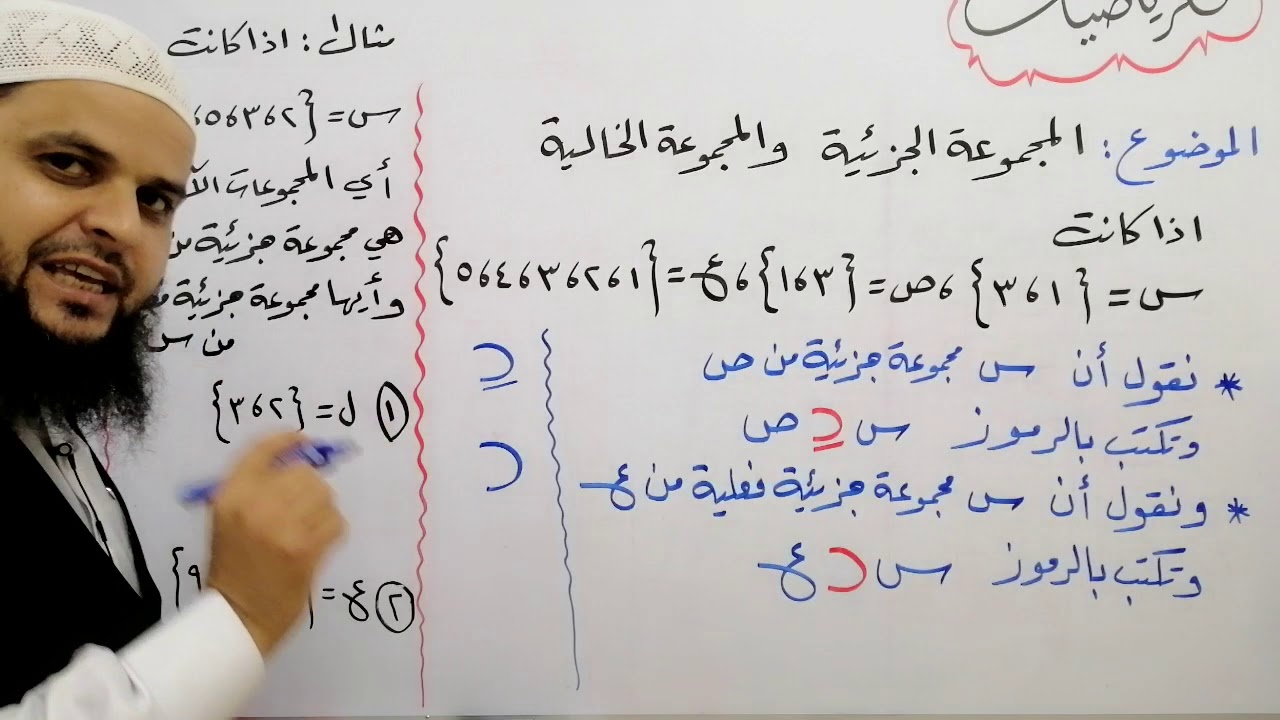 الرياضيات
الموضوع: المجموعة الجزئية والمجموعة الخالية
اذا كانت
س = {١، ٣}، ص = {٣، ١}، ع = {١، ٢، ٣، ٤، ٥}
* نقول أن س مجموعة جزئية من ص
وتكتب بالرموز س ⊆ ص
* ونقول أن س مجموعة جزئية فعلية من ع
وتكتب بالرموز س ⊂ ع
⊆
⊂
مثال: اذا كانت
س = {٢، ٣، ٥، ٦
أي المجموعات
هي مجموعة جزئية من
وأيها مجموعة جزئية
من س
① ل = {٢، ٣}
② ع = { ٩}